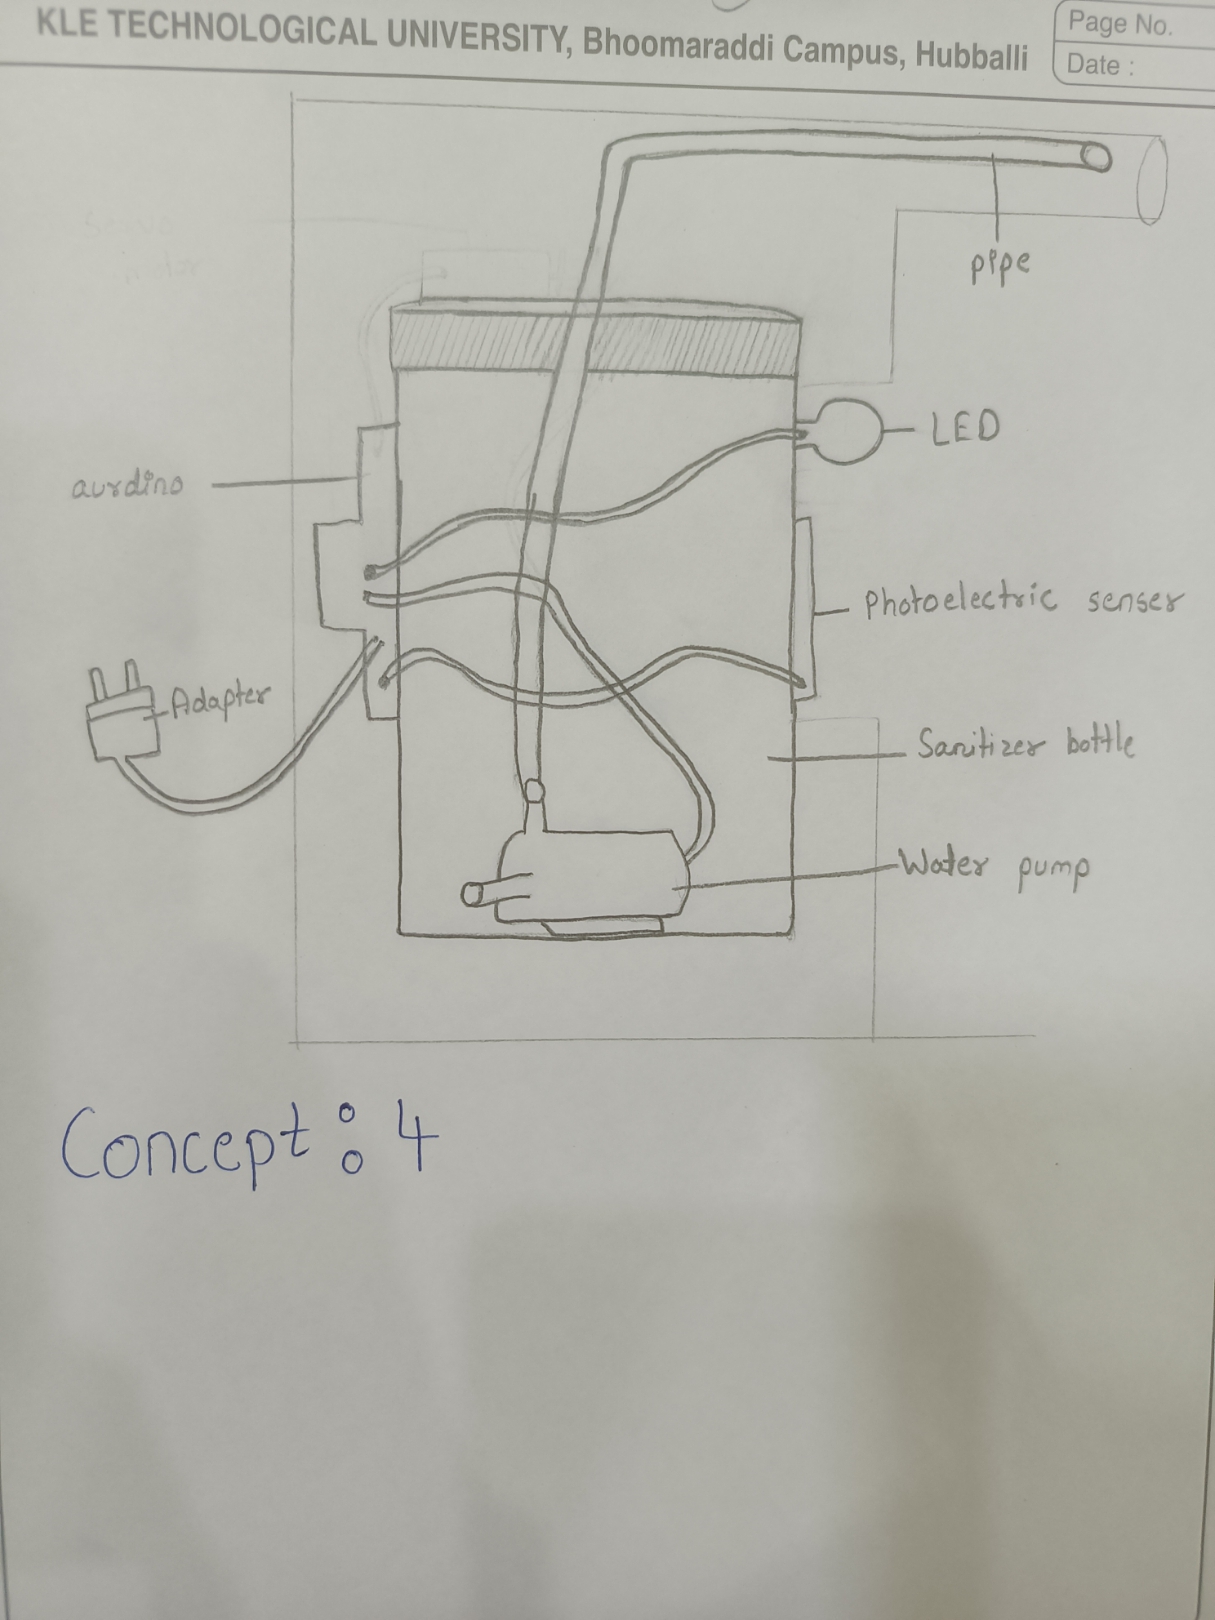 KLE TECHNOLOGICAL UNIVERSITY, Bhoomaraddi Campus, Hubballi
Page No.
Date :
Servo
motor
pipe
LED
aurdino
Photoelectric senser
Adapter
Sanitizer bottle
Water pump
Concept : 4